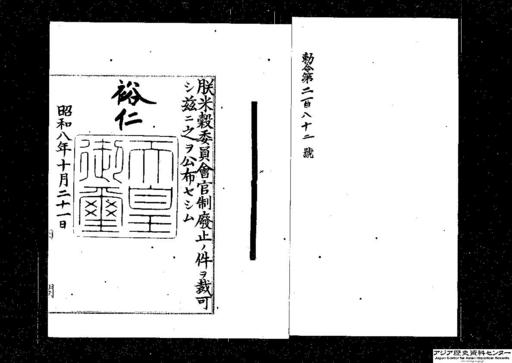 勅令第二百八十二號
朕米穀委員會官制廢止ノ件ヲ裁可
シ茲ニ之ヲ公布セシム
裕仁
天皇
御璽
昭和八年十月二十一日
アジア歴史資料センター
Japan Center for Asian Historical Records